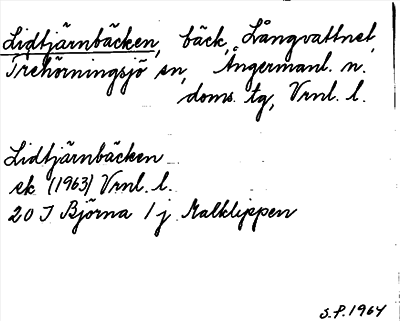 Lidtjärnbäcken, bäck, Långvattnet,
Trehörningsjö sn, Ångermanl. n.
doms. tg, Vrnl. l.
Lidtjärnbäcken
ek (1963) Vrnl. l.
20 I Björna 1 j Malklippen
S.P. 1964